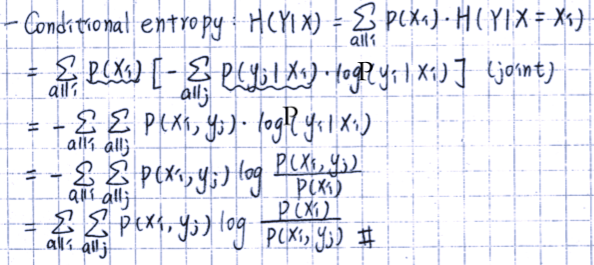 - Conditional entropy : H(Y|X) = Σ_{all i} P(Xi) · H(Y|X = Xi)
= Σ_{all i} P(Xi) [ - Σ_{all j} P(yj|Xi) · log P(yi|Xi) ] (joint)
= - Σ_{all i} Σ_{all j} P(Xi, yj) · log P(yi|Xi)
= - Σ_{all i} Σ_{all j} P(Xi, yj) log P(Xi, yj) / P(Xi)
= Σ_{all i} Σ_{all j} P(Xi, yj) log P(Xi) / P(Xi, yj) #